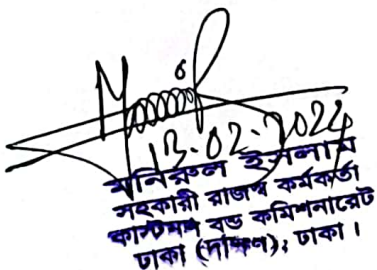 13-02-2024
মনিরুল ইসলাম
সহকারী রাজস্ব কর্মকর্তা
কাস্টমস বন্ড কমিশনারেট
ঢাকা (দক্ষিণ), ঢাকা।